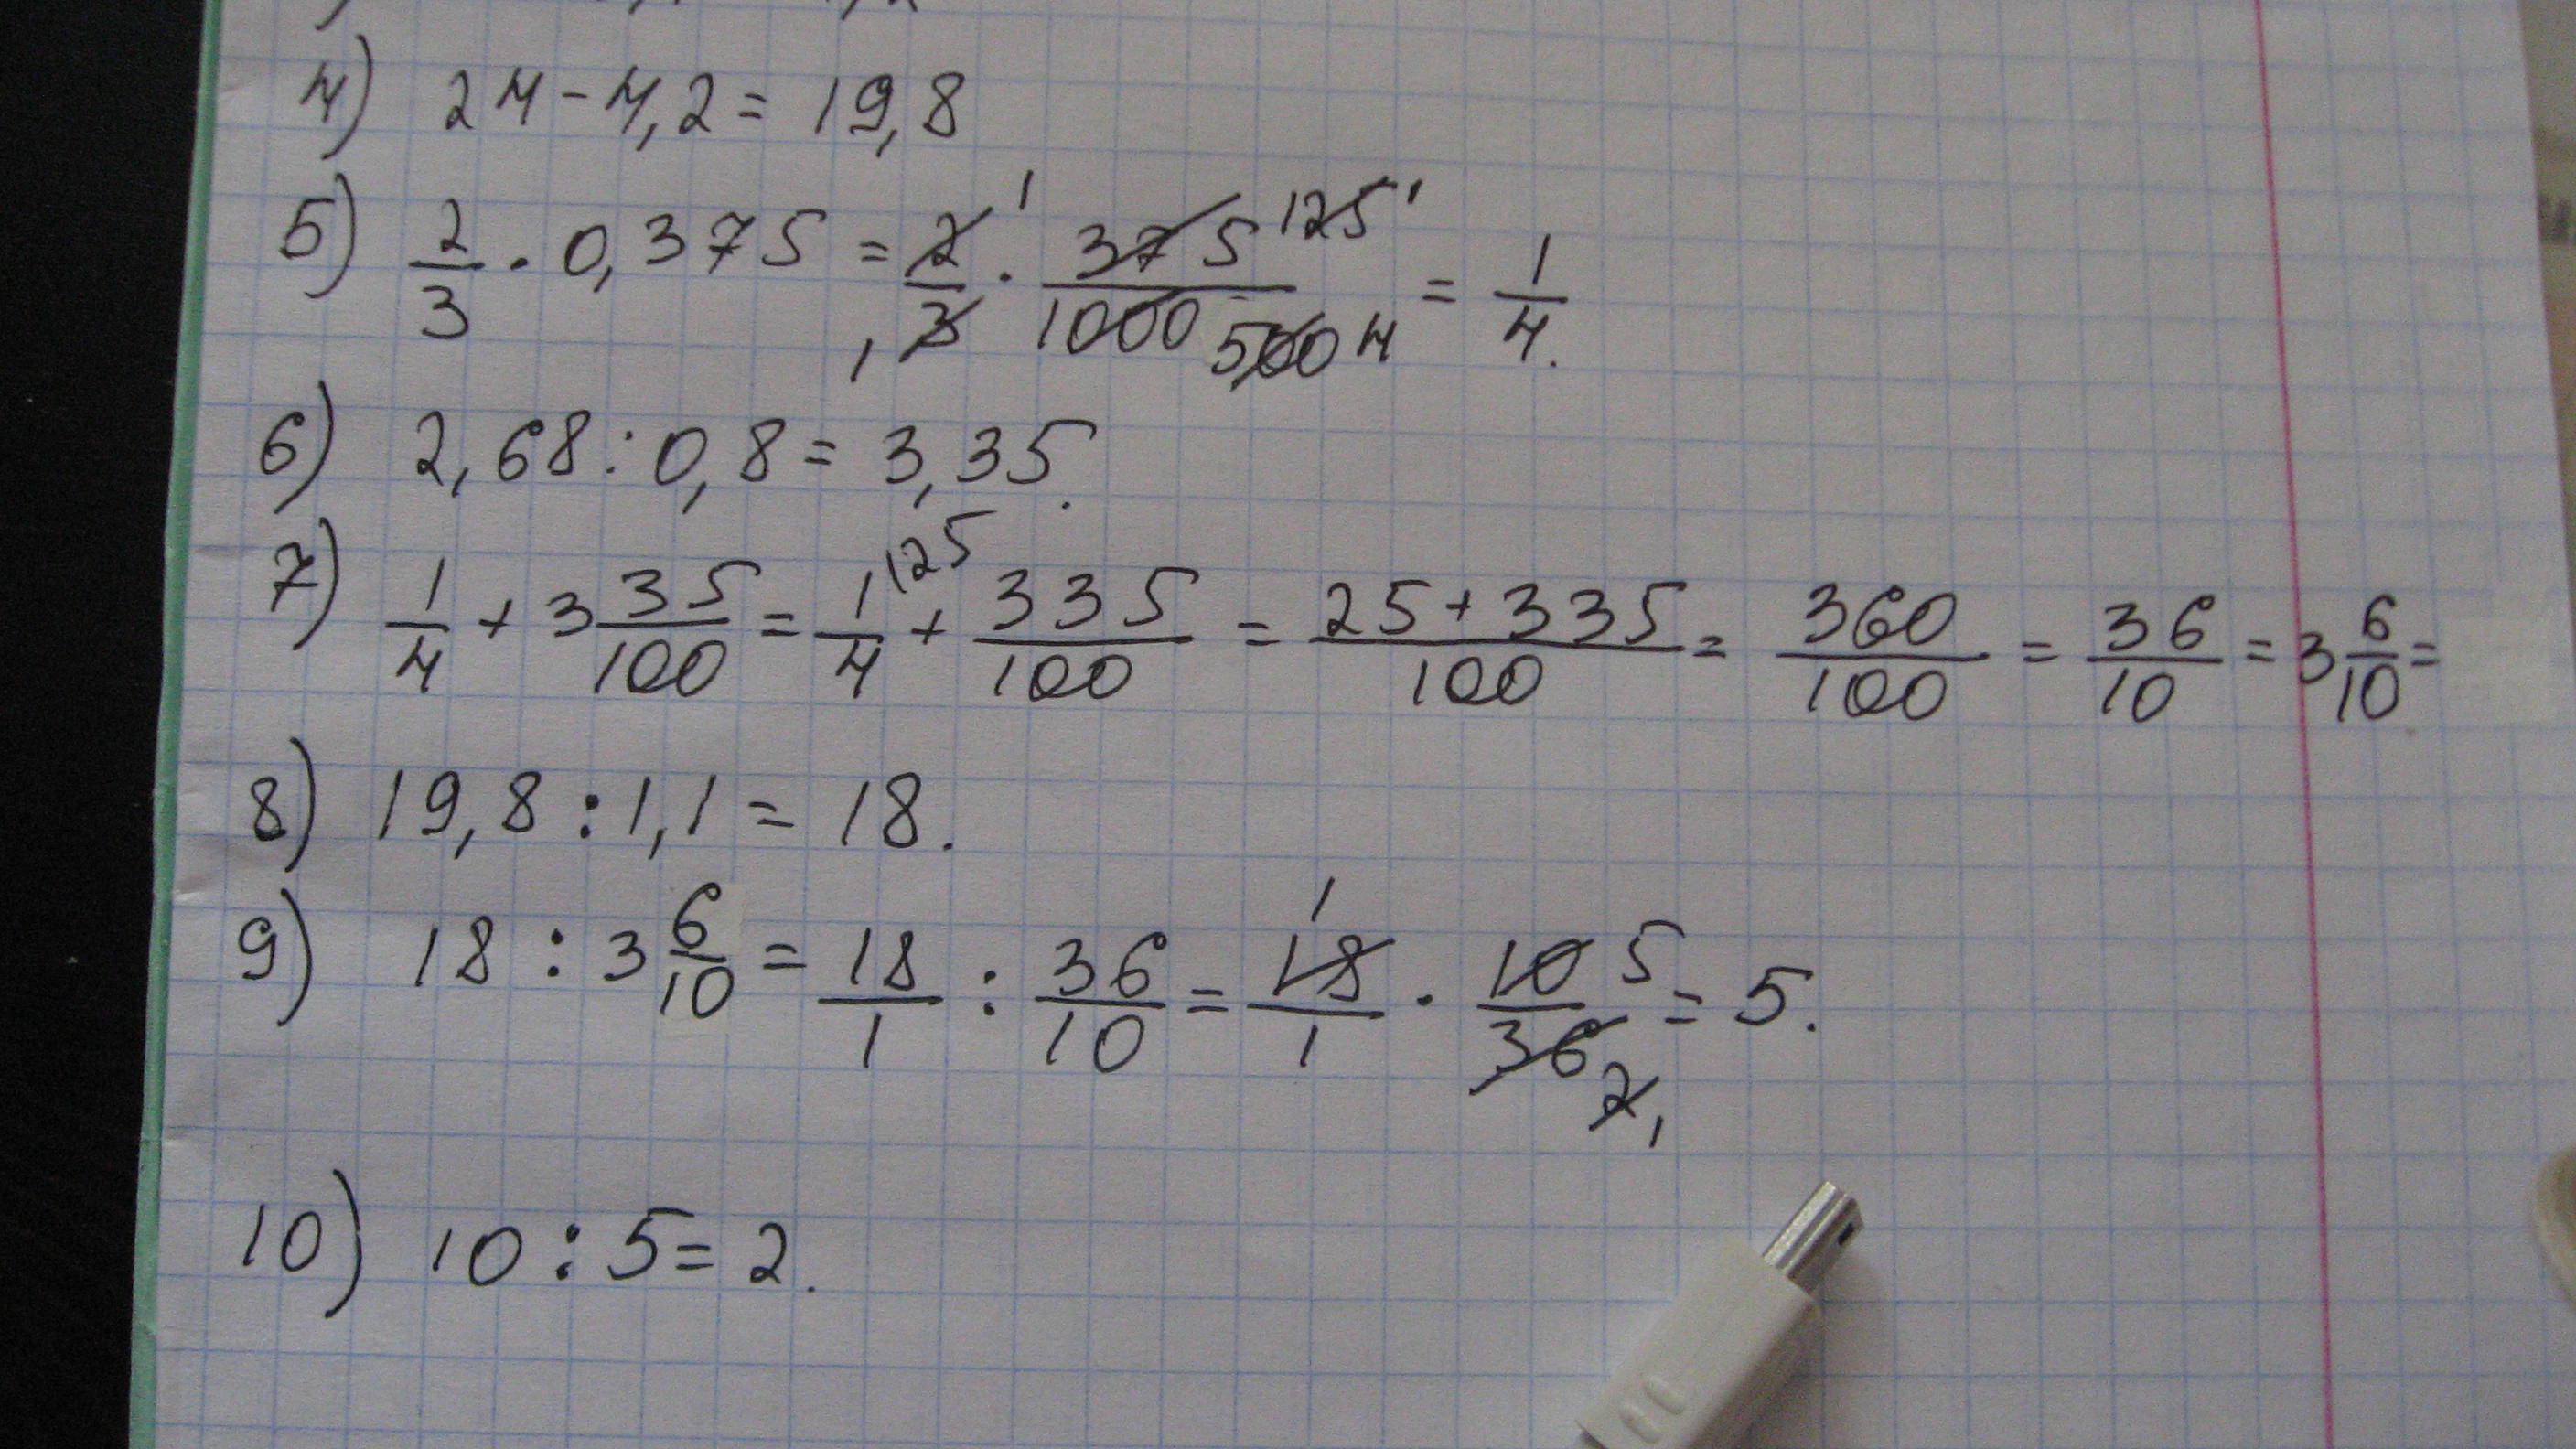 4) 24 - 4,2 = 19,8
5) 2/3 · 0,375 = 2/3 1 1 · 375/1000 125 1 500 4 = 1/4.
6) 2,68 : 0,8 = 3,35.
7) 1/4 + 3 35/100 = 1/4 (25 + 335/100 = 25 + 335/100 = 360/100 = 36/10 = 3 6/10 =
8) 19,8 : 1,1 = 18.
9) 18 : 3 6/10 = 18/1 : 36/10 = 18/1 1 · 10/36 5 2 1 = 5.
10) 10 : 5 = 2.